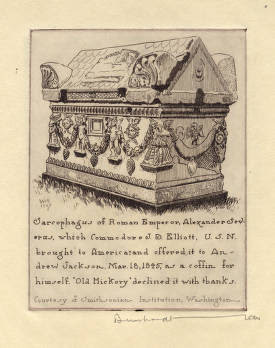 Sarcophagus of Roman Emperor, Alexander Sev-
erus, which Commodore J. D. Elliott, U. S. N.
brought to America and offered it to An-
drew Jackson, Mar. 18, 1845, as a coffin for
himself. "Old Hickory" declined it with thanks.
Courtesy of Smithsonian Institution, Washington
Bernhardt Wall